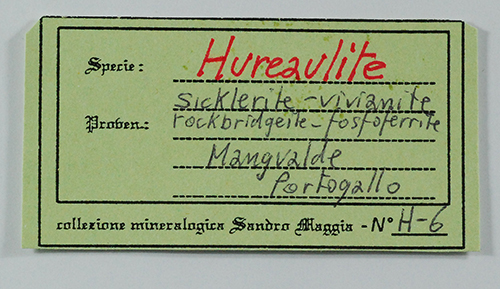 Specie: Hureaulite
sicklerite-vivianite
Proven.: rockbridgeite-fosfoferrite
Mangvalde
Portogallo
collezione mineralogica Sandro Maggia - N° H-6